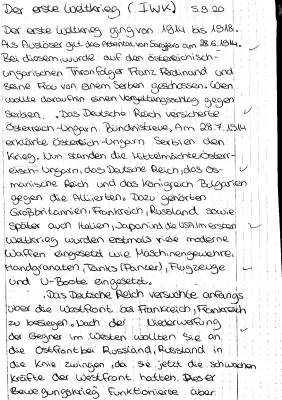 Der erste Weltkrieg (IWK) 5.9.20
Der erste Weltkrieg ging von 1914 bis 1918.
Als Auslöser gilt das Attentat von Sarajevo am 28.6.1914.
Bei diesem wurde auf den österreichisch-
ungarischen Thronfolger Franz Ferdinand und
seine Frau von einem Serben geschossen. Wien
wollte daraufhin einen Vergeltungsschlag gegen
Serbien. Das Deutsche Reich versicherte
Österreich-Ungarn Bündnistreue. Am 28.7.1914
erklärte Österreich-Ungarn Serbien den
Krieg. Nun standen die Mittelmächte Österr-
eisch-Ungarn, das Deutsche Reich, das Os-
manische Reich und das Königreich Bulgarien
gegen die Alliierten. Dazu gehörten
Großbritannien, Frankreich, Russland sowie
später auch Italien, Japan und die USA. Im ersten
Weltkrieg wurden erstmals viele moderne
Waffen eingesetzt wie Maschinengewehre,
Handgranaten, Tanks (Panzer), Flugzeuge
und U-Boote eingesetzt.
Das Deutsche Reich versuchte anfangs
über die Westfront bei Frankreich, Frankreich
zu besiegen. Nach der Niederwerfung
der Gegner im Westen wollten sie an
die Ostfront bei Russland, Russland in
die Knie zwingen, da sie jetzt die schwachen
Kräfte der Westfront hatten. Dieser
Bewegungskrieg funktionierte aber